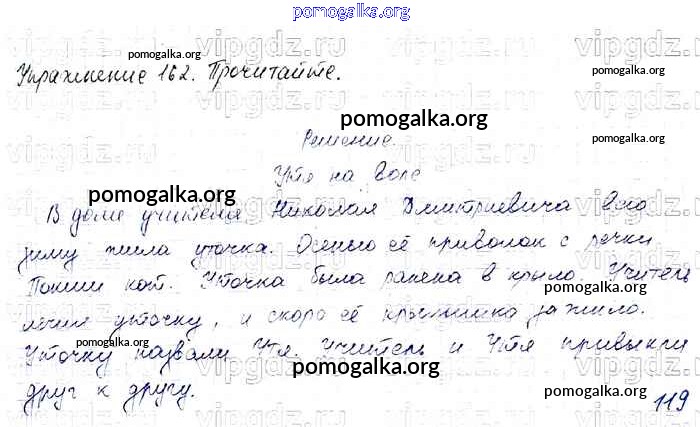 pomogalka.org
vipgdz.ru vipgdz.ru vipgdz.ru
pomogalka.org pomogalka.org
Упражнение 162. Прочитайте.
pomogalka.org
vipgdz.ru vipgdz.ru vipgdz.ru
pomogalka.org
Решение. pomogalka.org
Утя на воле
pomogalka.org
В доме учителя Николая Дмитриевича всю
зиму жила уточка. Осенью её приволок с речки
pomogalka.org
Покиши кот. Уточка была ранена в крыло. Учитель
лечил уточку, и скоро её крылышко зажило.
pomogalka.org pomogalka.org
Уточку назвали Утя. Учитель и Утя привыкли
pomogalka.org
друг к другу. pomogalka.org
119